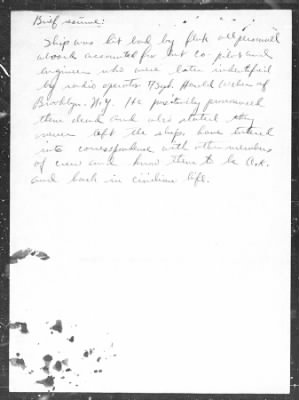 Brief resume:
Ship was hit bad by flak all personnel
aboard accounted for but co-pilot and
engineer who were later indentified
by radio operator T/Sgt. Harold Weber of
Brooklyn. N.Y. He positively pronounced
them dead and also stated they
never left the ship. have entered
into correspondence with other members
of crew and know them to be O.K.
and back in civilian life.